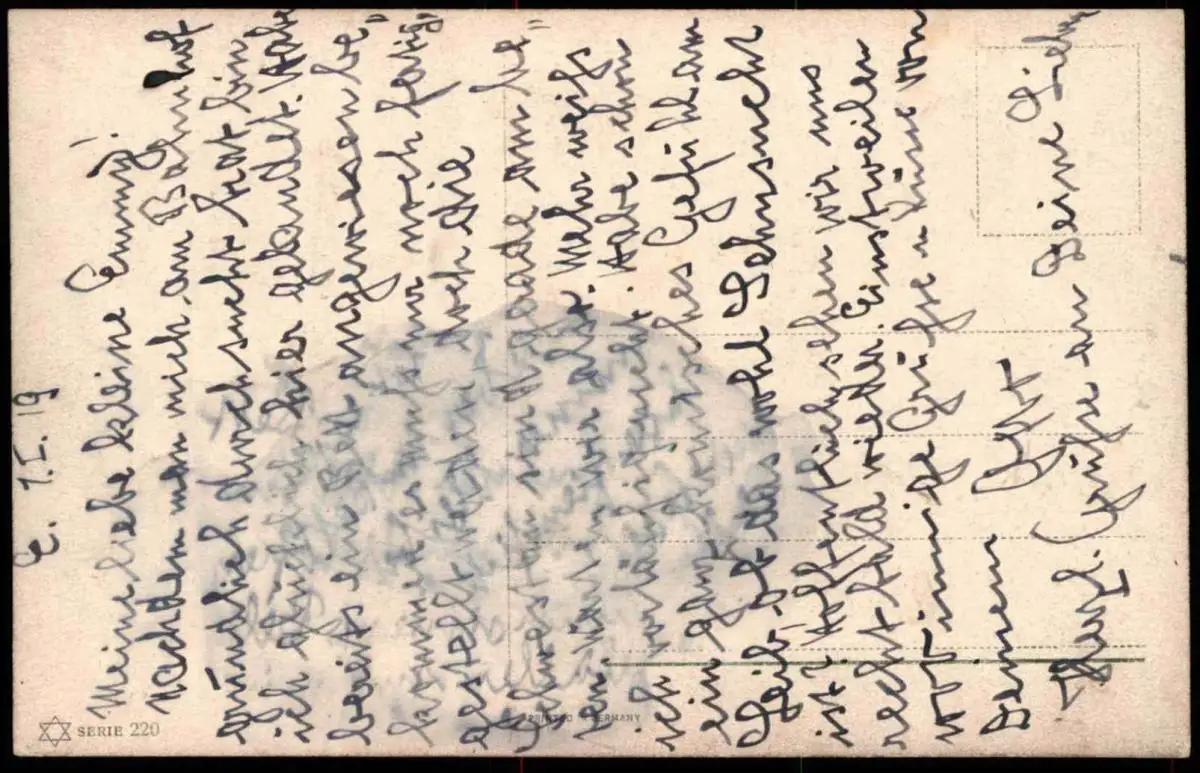 E. 1.I.19
Meine liebe kleine Emmy!
Nachdem man mich am Bahnhof
gründlich durchsucht hat bin
ich glücklich hier gelandet. Habe
bereits ein Bett angewiesen be„
kommen. Es muß nur noch fertig
gestellt werden durch die
Schwestern sind gerade am be„
Mehr weiß
ich vorläufig nicht. Habe schon
ein ganz komisches Gefühl am
Leib, ob das wohl Sehnsucht
ist? Hoffentlich sehen wir uns
recht bald wieder. Einstweilen
innige Grüße u Küsse von
Deinem
Herzl. Grüße an Deine Lieben
SERIE 220
PRINTED GERMANY